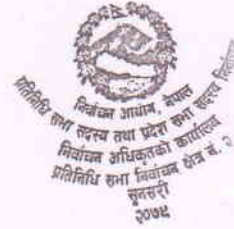 निर्वाचन आयोग, नेपाल
प्रतिनिधि सभा सदस्य तथा प्रदेश सभा सदस्य निर्वाचन
निर्वाचन अधिकृतको कार्यालय
प्रतिनिधि सभा निर्वाचन क्षेत्र नं. २
सुनसरी
२०७९